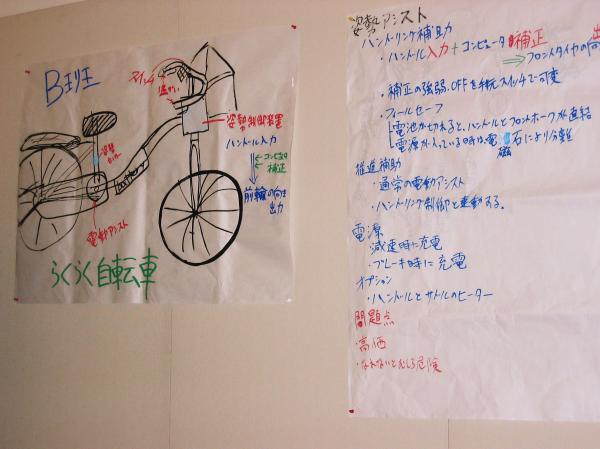 B班
スイッチ
温かい
姿勢制御装置
ハンドル入力
コンピュータ
補正
前輪の向き
出力
姿勢
battery
電動アシスト
らくらく自転車
姿勢アシスト
ハンドリング補助
・ハンドル入力+コンピュータ補正 出
⇒フロントタイヤの向
・補正の強弱、OFFを手元スイッチで可変
・フィールセーフ
電池が切れると、ハンドルとフロントホークが直結
電源が入っている時は電磁石により分離
推進補助
・通常の電動アシスト
・ハンドリング制御と連動する。
電源
・減速時に充電
・ブレーキ時に充電
オプション
・ハンドルとサドルのヒーター
問題点
・高価
・なれないとむしろ危険